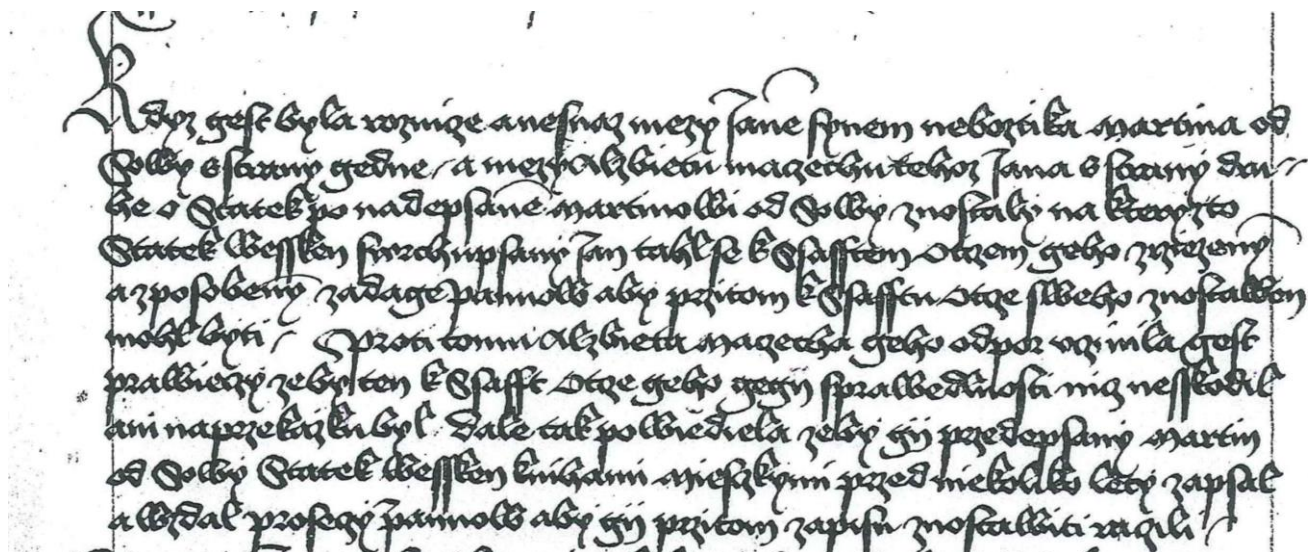 Kdyz gest byla roznize a nesnaz mezy Janē synem neboztika Martina od
Sowy s strany gedne / a mezy Alzbietu maczechu tehoz Jana s strany dru /
he o Statek po nadepsanē Martinowi od Sowy znostaly na kteryzto
Statek wessken swrchupsany Jan tahl se kSsafftem Otczem geho zrzizenym̄
a zposobenym̄ zadage panuow aby przitom kSsafftu Otcze sweho znostawen
mohl byti / Proti tomu Alzbieta maczecha geho odpor vczinila gest
prawiczy zeby ten kSsafft Otcze geho gegij sprawedlnosti nicz nesskodil
ani naprzekazku byl dale tak powiediela zeby gij przedepsany Martin
od Sowy Statek wessken knihami Miesczkymi przed niekoliko lety zapsal
a wzdal prosyczy panuow aby gij przitom zapisu znostawiti raczili /